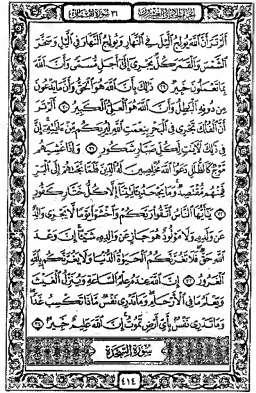 أَلَمْ تَرَ أَنَّ ٱللَّهَ يُولِجُ ٱلَّيْلَ فِى ٱلنَّهَارِ وَيُولِجُ ٱلنَّهَارَ فِى ٱلَّيْلِ وَسَخَّرَ
ٱلشَّمْسَ وَٱلْقَمَرَ كُلٌّ يَجْرِىٓ إِلَىٰٓ أَجَلٍ مُّسَمًّى وَأَنَّ ٱللَّهَ
بِمَا تَعْمَلُونَ خَبِيرٌ ٢٩ ذَٰلِكَ بِأَنَّ ٱللَّهَ هُوَ ٱلْحَقُّ وَأَنَّ مَا يَدْعُونَ
مِن دُونِهِ ٱلْبَٰطِلُ وَأَنَّ ٱللَّهَ هُوَ ٱلْعَلِىُّ ٱلْكَبِيرُ ٣٠ أَلَمْ تَرَ
أَنَّ ٱلْفُلْكَ تَجْرِى فِى ٱلْبَحْرِ بِنِعْمَتِ ٱللَّهِ لِيُرِيَكُم مِّنْ ءَايَٰتِهِۦٓ إِنَّ
فِى ذَٰلِكَ لَءَايَٰتٍ لِّكُلِّ صَبَّارٍ شَكُورٍ ٣١ وَإِذَا غَشِيَهُم
مَّوْجٌ كَٱلظُّلَلِ دَعَوُا۟ ٱللَّهَ مُخْلِصِينَ لَهُ ٱلدِّينَ فَلَمَّا نَجَّىٰهُمْ إِلَى ٱلْبَرِّ
فَمِنْهُم مُّقْتَصِدٌ وَمَا يَجْحَدُ بِـَٔايَٰتِنَآ إِلَّا كُلُّ خَتَّارٍ كَفُورٍ
٣٢ يَٰٓأَيُّهَا ٱلنَّاسُ ٱتَّقُوا۟ رَبَّكُمْ وَٱخْشَوْا۟ يَوْمًا لَّا يَجْزِى وَالِدٌ
عَن وَلَدِهِۦ وَلَا مَوْلُودٌ هُوَ جَازٍ عَن وَالِدِهِۦ شَيْـًٔا إِنَّ وَعْدَ
ٱللَّهِ حَقٌّ فَلَا تَغُرَّنَّكُمُ ٱلْحَيَوٰةُ ٱلدُّنْيَا وَلَا يَغُرَّنَّكُم بِٱللَّهِ
ٱلْغَرُورُ ٣٣ إِنَّ ٱللَّهَ عِندَهُۥ عِلْمُ ٱلسَّاعَةِ وَيُنَزِّلُ ٱلْغَيْثَ
وَيَعْلَمُ مَا فِى ٱلْأَرْحَامِ وَمَا تَدْرِى نَفْسٌ مَّاذَا تَكْسِبُ غَدًا
وَمَا تَدْرِى نَفْسٌۢ بِأَىِّ أَرْضٍ تَمُوتُ إِنَّ ٱللَّهَ عَلِيمٌ خَبِيرٌۢ ٣٤
سُورَةُ السَّجْدَةِ
٤١٤